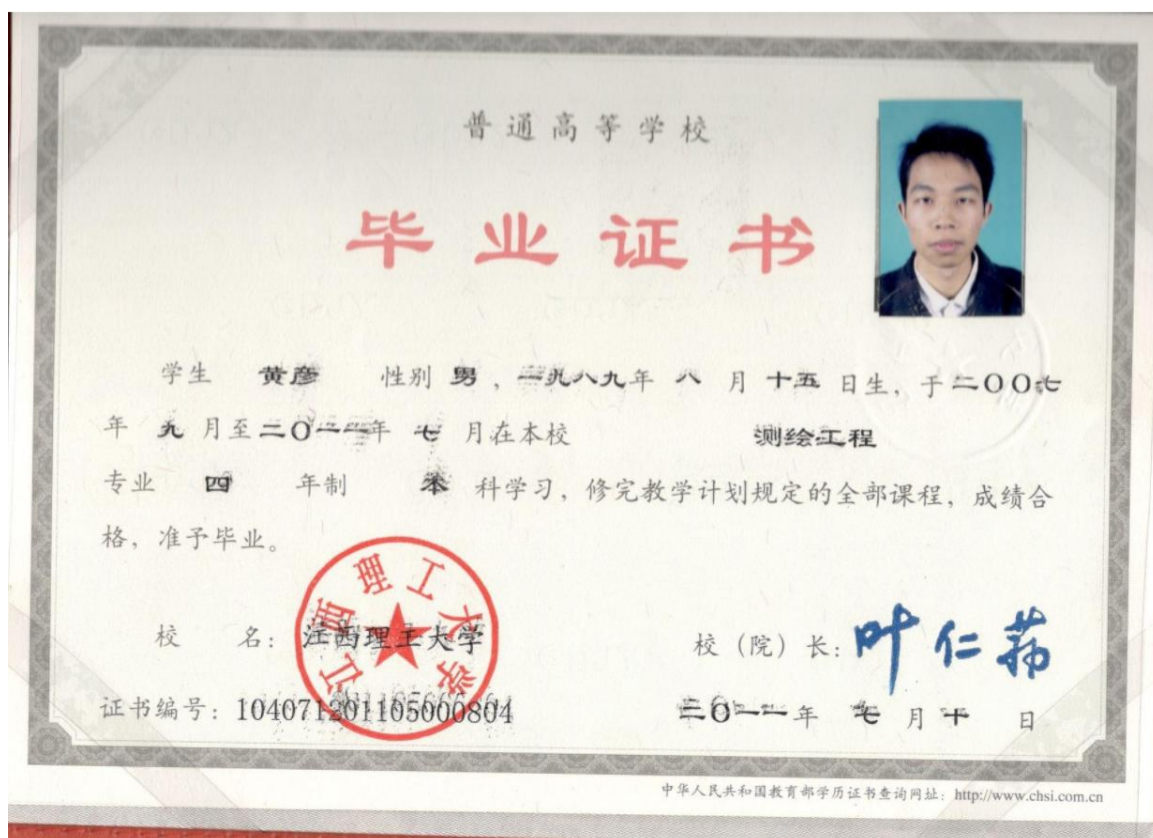 普通高等学校
毕业证书
学生 黄彦 性别 男，一九八九年 八 月 十五 日生，于二〇〇七
年 九 月至二〇一一年 七 月在本校 测绘工程
专业 四 年制 本 科学习，修完教学计划规定的全部课程，成绩合
格，准予毕业。
江西理工大学
校 名：江西理工大学
校（院）长：叶仁荪
证书编号：104071201105000804
二〇一一年 七 月 十 日
中华人民共和国教育部学历证书查询网址：http://www.chsi.com.cn